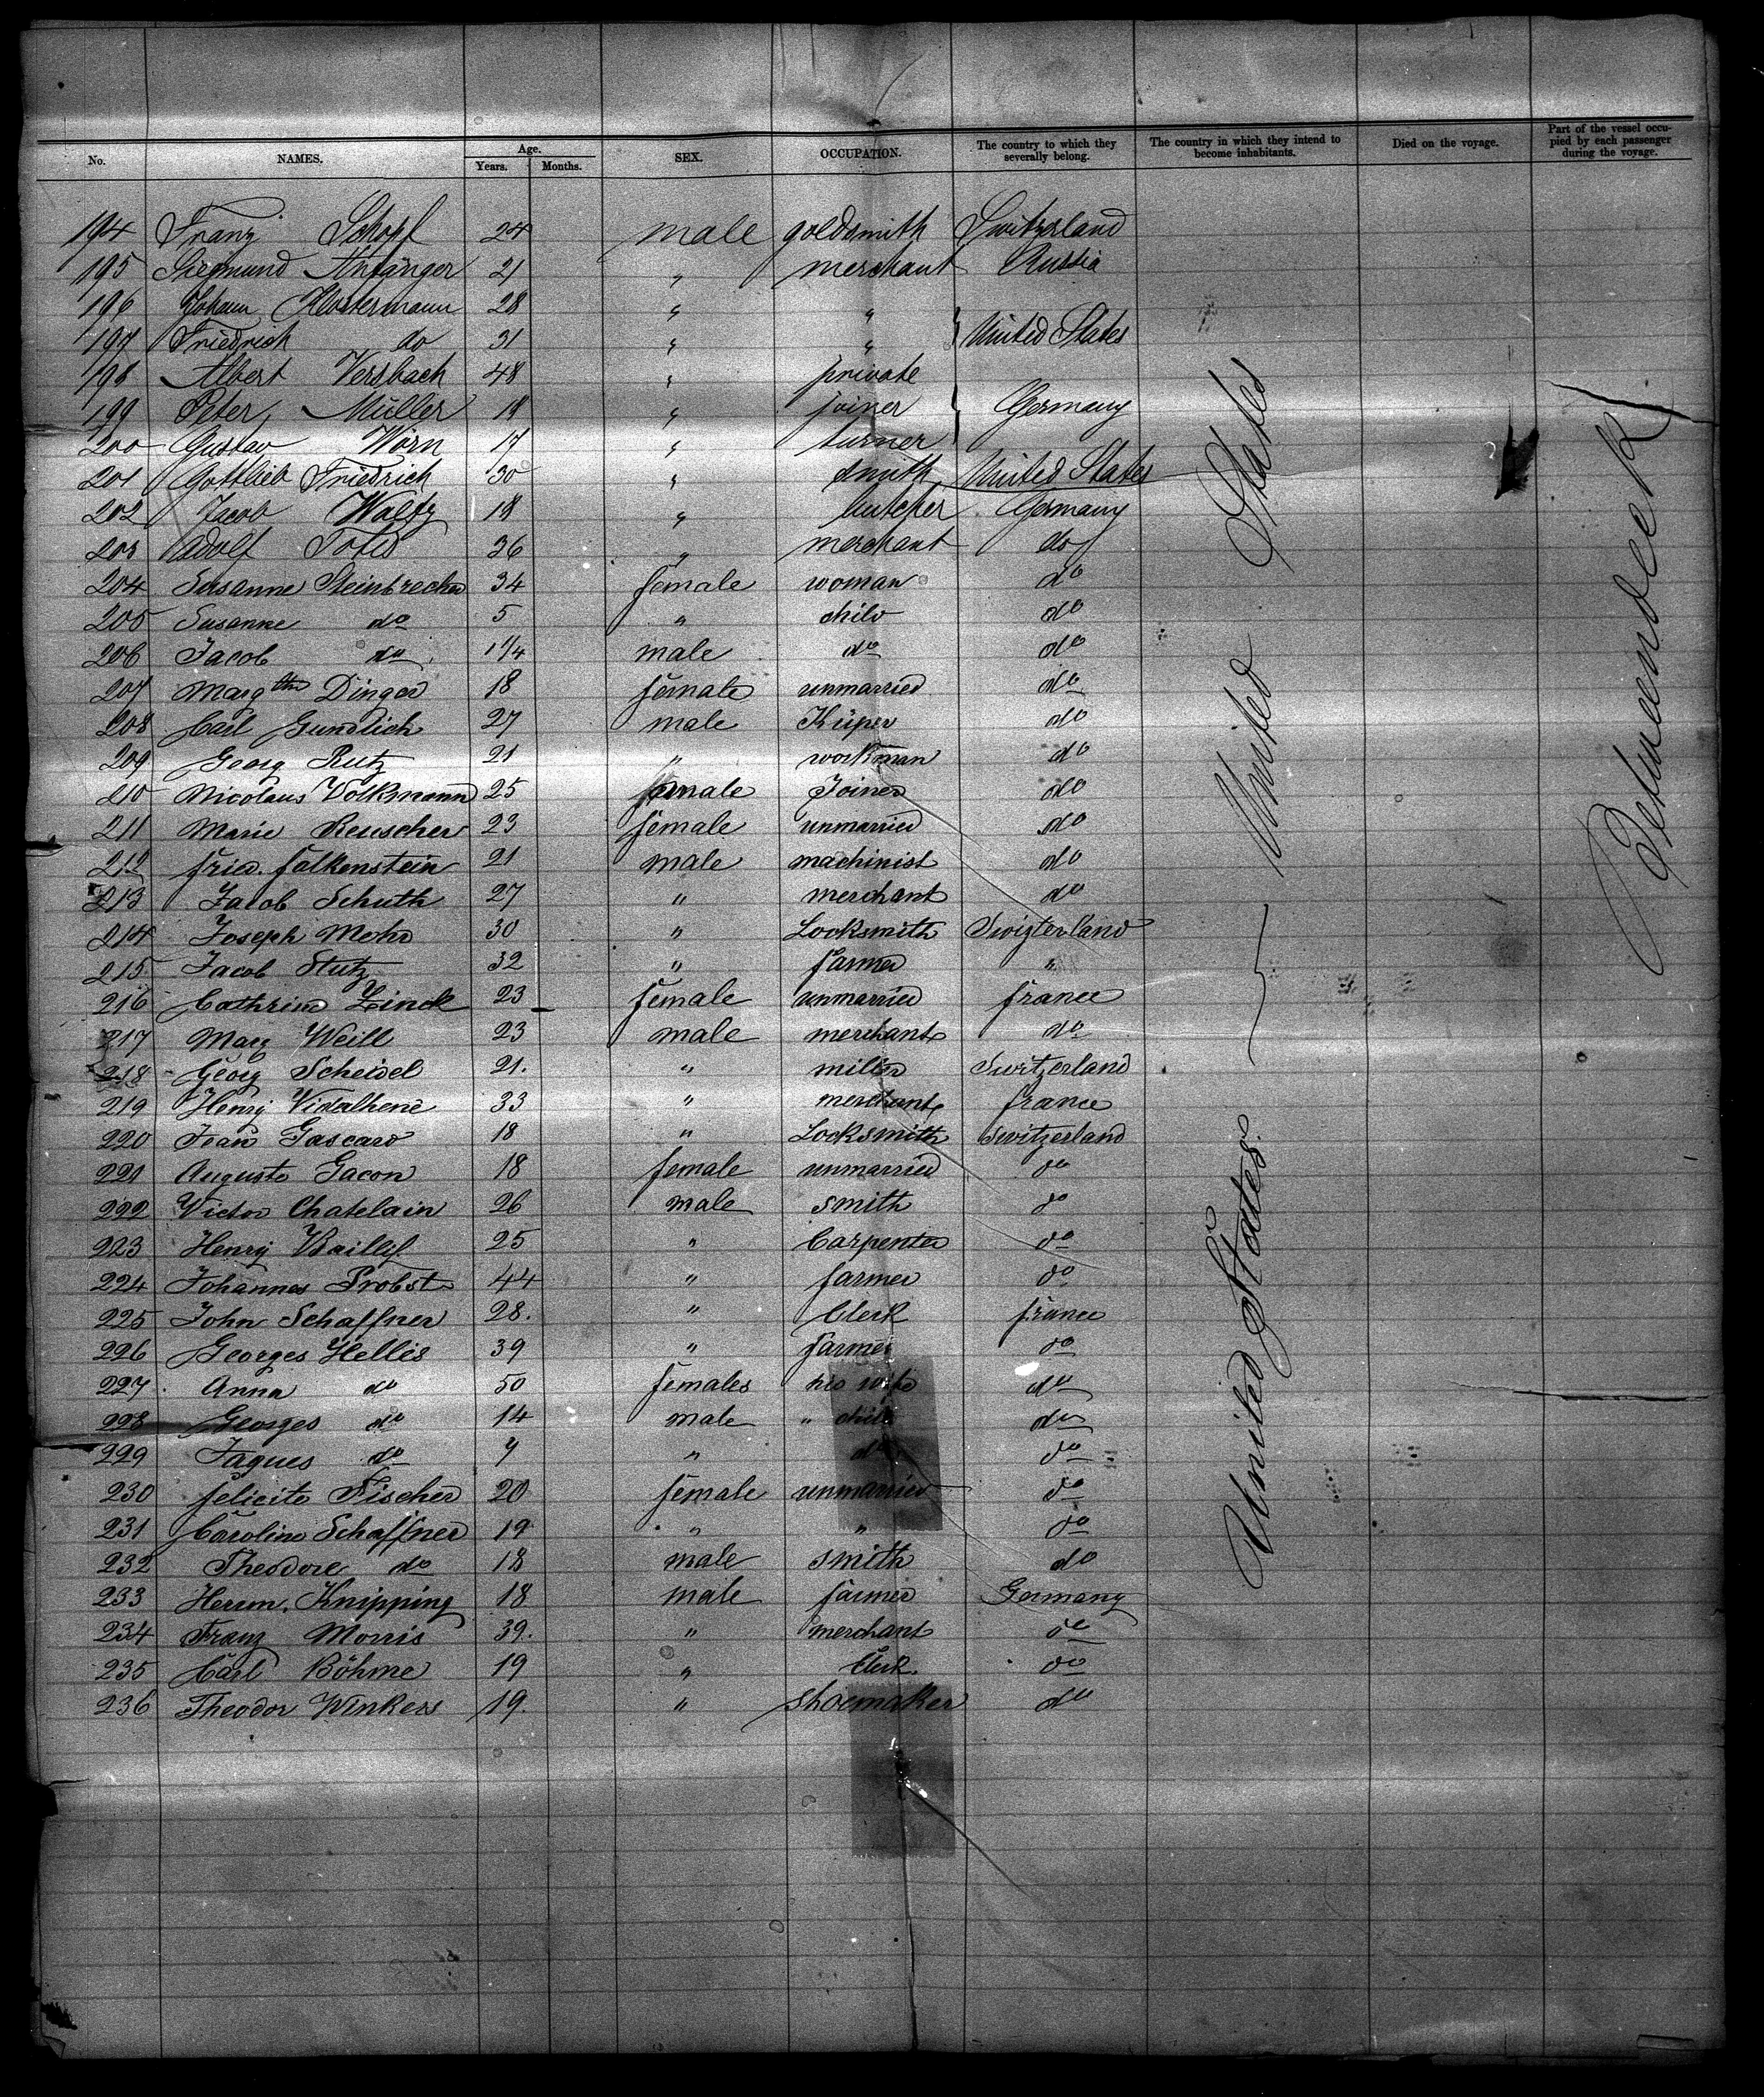 No. NAMES. Age. Years. Months. SEX. OCCUPATION. The country to which they severally belong. The country in which they intend to become inhabitants. Died on the voyage. Part of the vessel occupied by each passenger during the voyage.
194 Franz Schopf 24 male goldsmith Switzerland
195 Siegmund Anfänger 21 " merchant Russia
196 Johann Klostermann 28 " "
197 Friedrich do 31 " " United States
198 Albert Versbach 48 " private
199 Peter Müller 18 " joiner Germany
200 Gustav Wörn 17 " turner
201 Gottlieb Friedrich 30 " smith United States
202 Jacob Waltz 18 " butcher Germany
203 Adolf 36 " merchant do
204 Susanne Steinbrecher 34 female woman do
205 Susanne do 5 " child do
206 Jacob do 1 1/4 male do do
207 Margthe Dinger 18 female unmarried do
208 Carl Gundlich 27 male Küper do
209 Georg Rutz 21 " workman do
210 Nicolaus Volkmann 25 male Joiner do
211 Marie Reuscher 23 female unmarried do
212 Fried. Falkenstein 21 male machinist do
213 Jacob Schuth 27 " merchant do
214 Joseph Mohr 30 " Locksmith Swizterland
215 Jacob Stutz 32 " farmer "
216 Cathrine Zinck 23 female unmarried france
217 Marg Weill 23 male merchant do
218 Georg Scheidel 21. " miller Switzerland
219 Henry Vidalhene 33 " merchant france
220 Jean Gascard 18 " Locksmith Switzerland
221 Auguste Gacon 18 female unmarried do
222 Victor Chatelain 26 male smith do
223 Henry Baillif 25 " Carpenter do
224 Johannes Probst 44 " farmer do
225 John Schaffner 28. " Clerk france
226 Georges Hellis 39 " farmer do
227 Anna do 50 females his wife do
228 Georges do 14 male " child do
229 Jaques do 7 " do do
230 felicite Fischer 20 female unmarried do
231 Caroline Schaffner 19 " " do
232 Theodore do 18 male smith do
233 Herm. Knipping 18 male farmer Germany
234 Franz Morris 39. " merchant do
235 Carl Böhme 19 " Clerk. do
236 Theodor Winkers 19. " shoemaker do
United States
United States.
Betweendeck